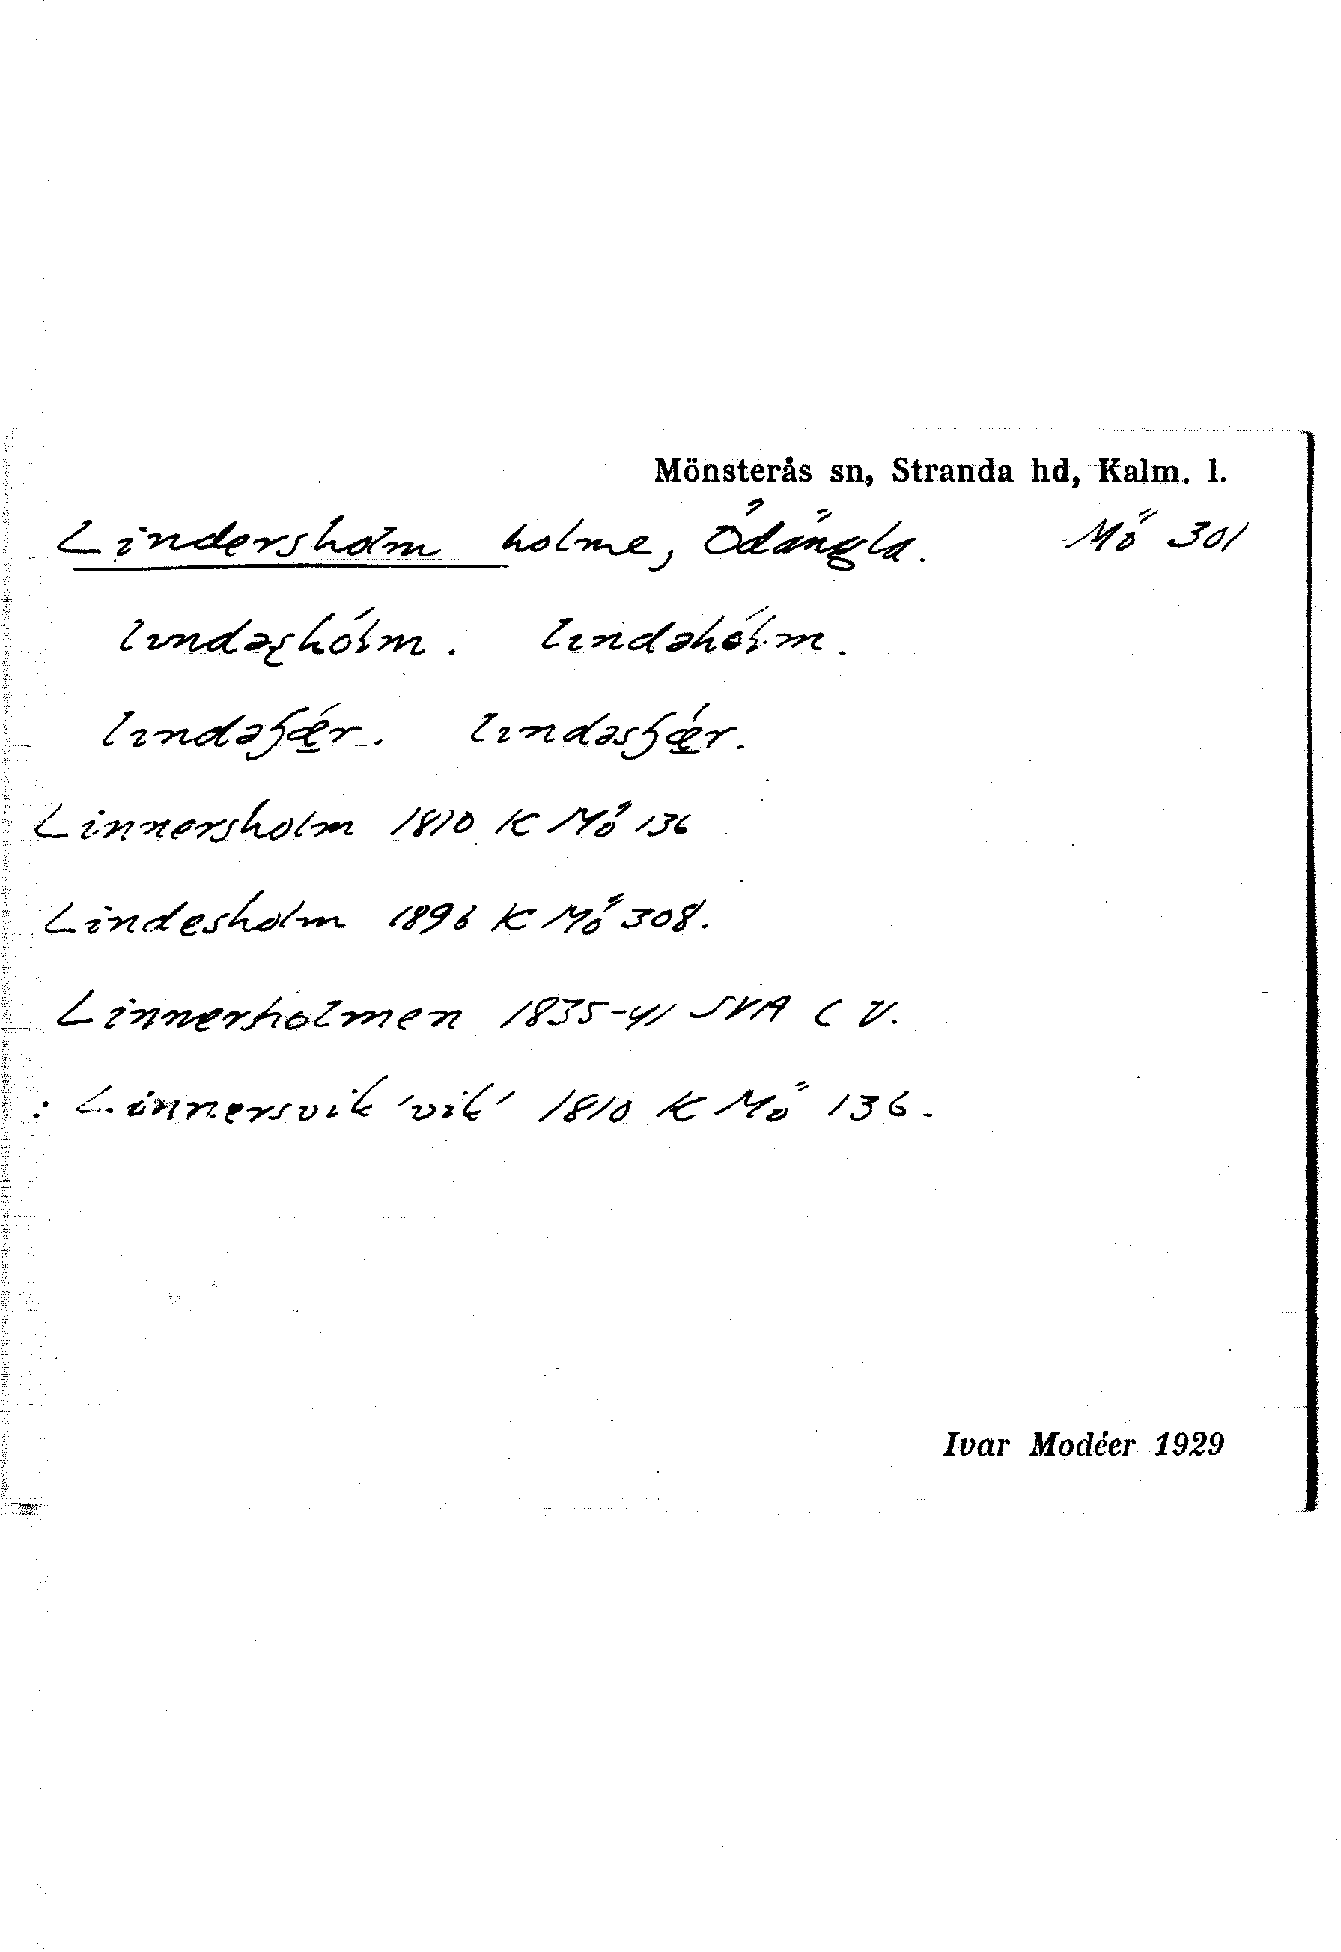 Mönsterås sn, Stranda hd, Kalm. l.
Lindersholm holme, Ödängla. Mö 301
lındəʂhólm. lındəhólm.
Linnersholm 1810 K Mö 136
Lindesholm 1896 K Mö 308.
Linnerholmen 1835-41 SVA C V.
: Linnersvik 'vik' 1810 K Mö 136.
Ivar Modéer 1929